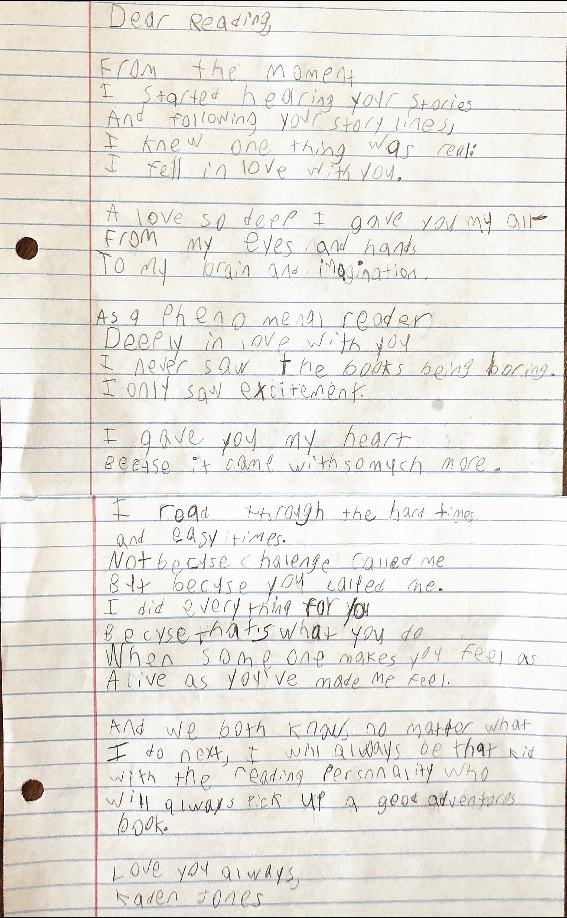 Dear Reading,
From the moment
I started hearing your stories
And following your story lines,
I knew one thing was real:
I fell in love with you.
A love so deep I gave you my all
From my eyes and hands
To my brain and imagination.
As a Phenomenal reader
Deeply in love with you
I never saw the books being boring.
I only saw excitement.
I gave you my heart
Becuse it came with so much more.
I road through the hard times
and easy times.
Not becuse chalenge called me
But becuse you called me.
I did everything for you
Becuse thats what you do
When some one makes you feel as
Alive as you've made me feel.
And we both know, no matter what
I do next, I will always be that kid
with the reading personality who
will always pick up a good adventures
book.
Love you always,
Kaden Jones